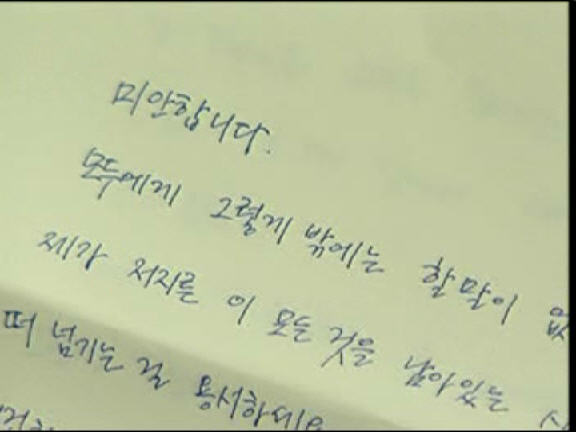 미안합니다.
모두에게 그렇게 밖에는 할말이 없
제가 저지른 이 모든 것을 남아있는
떠 넘기는 걸 용서하세요